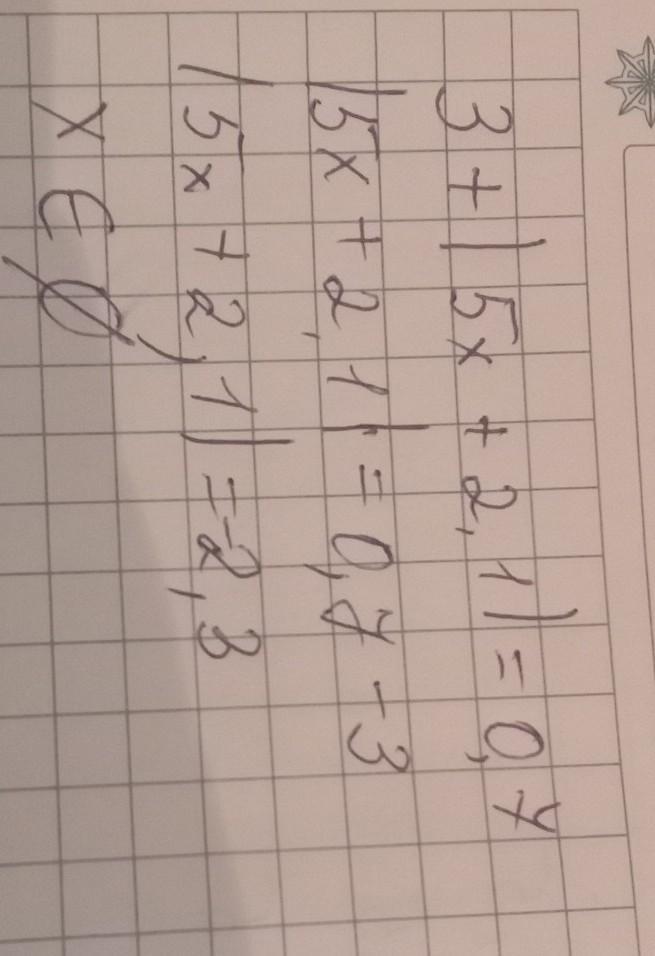 3 + |5x + 2,1| = 0,7
|5x + 2,1| = 0,7 - 3
|5x + 2,1| = -2,3
x ∈ ∅